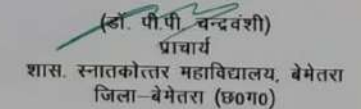 (डॉ. पी.पी चन्द्रवंशी)
प्राचार्य
शास. स्नातकोत्तर महाविद्यालय, बेमेतरा
जिला–बेमेतरा (छ0ग0)